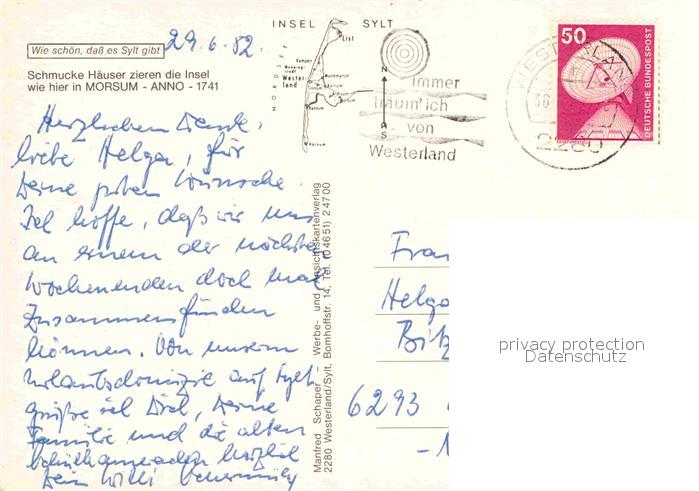 Wie schön, daß es Sylt gibt
29.6.82
Schmucke Häuser zieren die Insel
wie hier in MORSUM - ANNO - 1741
Herzlichen Dank,
liebe Helga, für
Deine guten Wünsche.
Ich hoffe, daß wir uns
an einem der nächsten
Wochenenden doch mal
zusammenfinden
können. Von unserm
Urlaubsdomizil auf Sylt
grüße ich Dich, Deine
Familie und die alten
Schulkameraden herzlich
Dein Willi
Manfred Schaper - Werbe- und Ansichtskartenverlag
2280 Westerland/Sylt, Bomhoffstr. 14, Tel. (04651) 24700
INSEL SYLT
NORDSEE
List
Kampen
Wester-
land
N
S
immer
träum' ich
von
Westerland
WESTERLAND
30
2280
50
DEUTSCHE BUNDESPOST
Frau
Helga
6293
privacy protection
Datenschutz